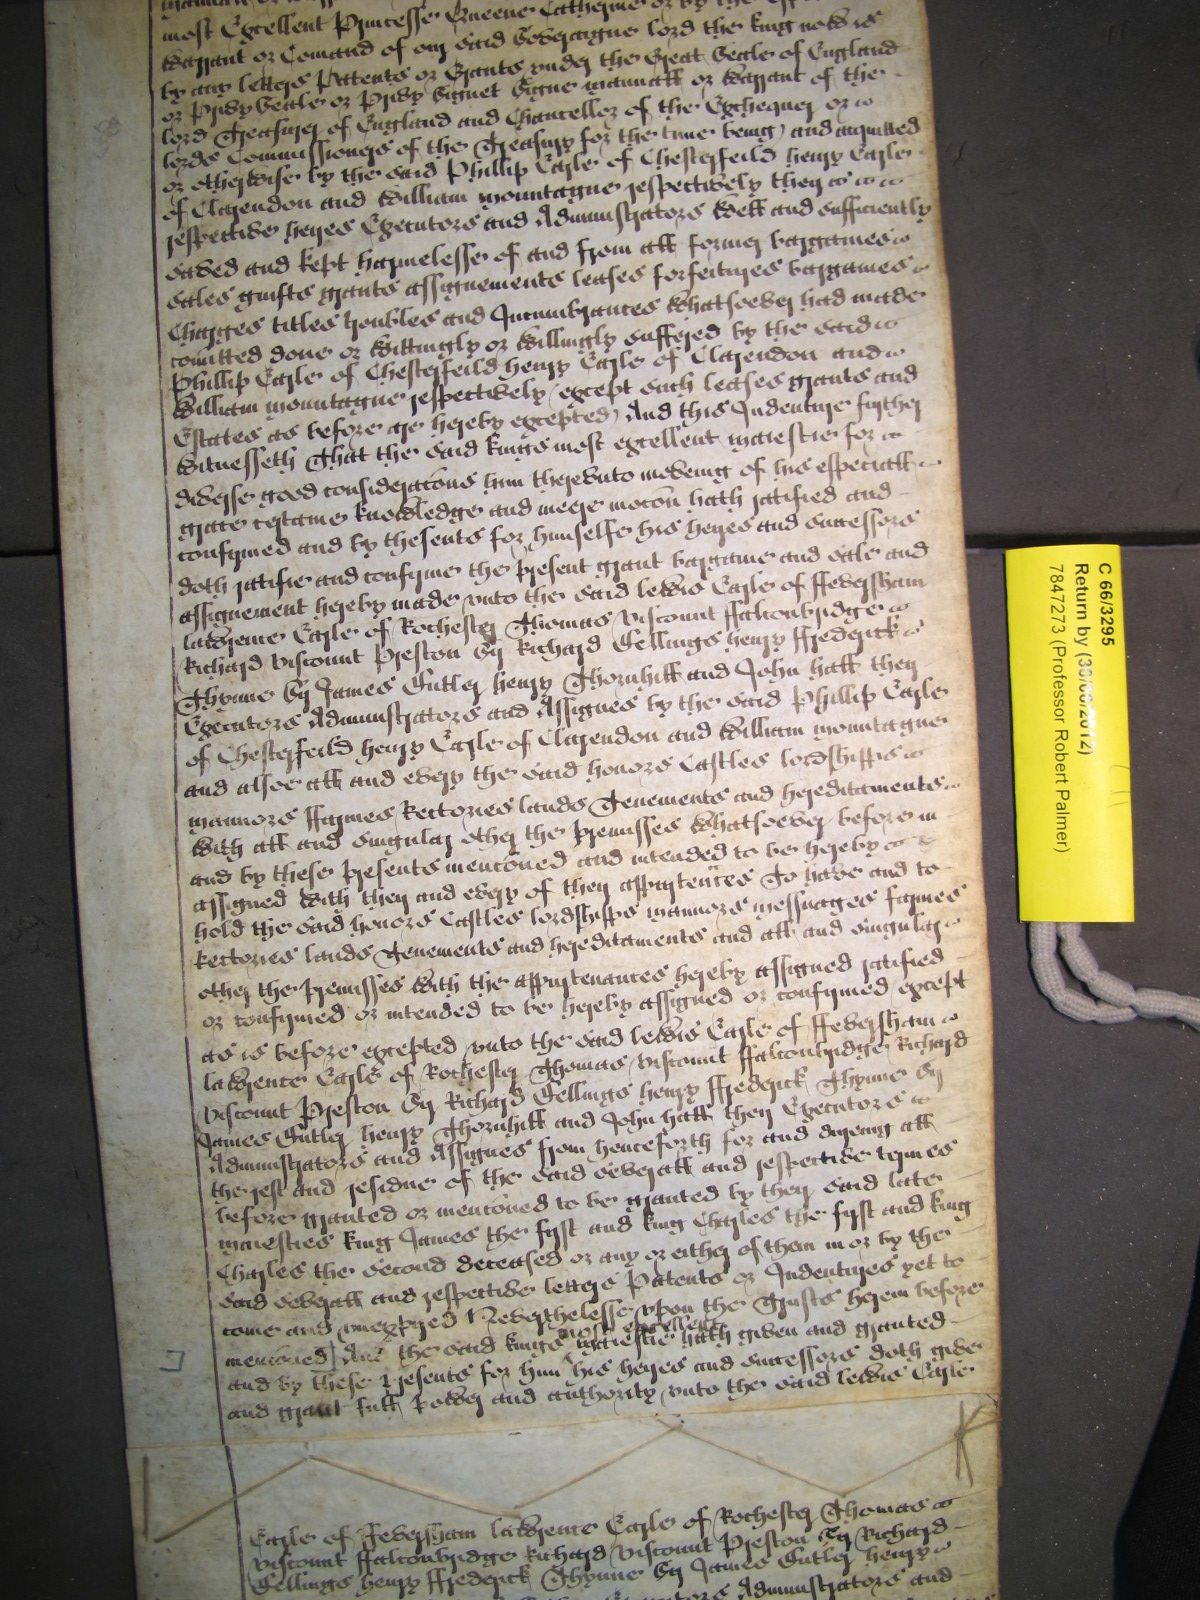 most Excellent Princesse Queene Catherine or by the
warrant or Comand of our said Soveraigne lord the king now is
by any letters Patents or Grants under the Great Seale of England
or Privy Seale or Privy Signet Signe manuall or warrant of the
lord Treasurer of England and Chancellor of the Exchequer or
lords Commissioners of the Treasury for the time being) and acquitted
or otherwise by the said Phillip Earle of Chesterfeild henry Earle
of Clarendon and William mountague respectively their
respective heyres Executors and Administrators well and sufficiently
saved and kept harmelesse of and from all former bargaines
sales guifts grants assignements leases forfeitures bargaines
Charges titles troubles and Incumbrances whatsoever had made
comitted done or wittingly or willingly suffered by the said
Phillip Earle of Chesterfeild henry Earle of Clarendon and
William mountague respectively (except such leases grants and
Estates as before are hereby excepted) And this Indenture further
witnesseth That the said kings most excellent maiestie for
diverse good consideracons him thereunto moveing of his especiall
grace certaine knowledge and meere mocon hath ratified and
confirmed and by thesents for himselfe his heyres and successors
doth ratifie and confirme the present grant bargaine and sale and
assignement hereby made unto the said lewis Earle of ffeversham
lawrence Earle of Rochester Thomas viscount ffalconbridge
Richard viscount Preston Sr Richard Bellings henry ffrederick
Thynne Sr James Butler henry Thornhill and John hall their
Executors Administrators and Assignes by the said Phillip Earle
of Chesterfeild henry Earle of Clarendon and William mountague
and alsoe all and every the said honors Castles lordshipps
mannors ffarmes Rectories lands Tenements and hereditaments
with all and singuler other the premisses whatsoever before in
and by these presents mencioned and intended to be hereby
assigned with their and every of their appurtences To have and to
hold the said honors Castles lordshipps mannors messuages farmes
Rectories lands Tenements and hereditaments and all and singular
other the premisses with the appurtenances hereby assigned ratified
or confirmed or intended to be hereby assigned or confirmed except
as is before excepted unto the said lewis Earle of ffeversham
lawrence Earle of Rochester Thomas viscount ffalconbridge Richard
viscount Preston Sr Richard Bellings henry ffrederick Thynne Sr
James Butler henry Thornhill and John hall their Executors
Administrators and Assignes from henceforth for and dureing all
the rest and residue of the said severall and respective termes
before granted or mencioned to be granted by their said late
maiesties king James the first and king Charles the first and king
Charles the second deceased or any or either of them in or by the
said severall and respective letters Patents or Indentures yet to
come and unexpired Neverthelesse upon the Trusts herein before
mencioned And the said kings most excellent maiestie hath given and granted
and by these presents for him his heyres and successors doth give
and grant full power and authority unto the said lewis Earle
Earle of Feversham lawrence Earle of Rochester Thomas
viscount ffalconbridge Richard viscount Preston Sr Richard
Bellings henry ffrederick Thynne Sr James Butler henry
Administrators and
C 66/3295
Return by (30/06/2012)
7847273 (Professor Robert Palmer)